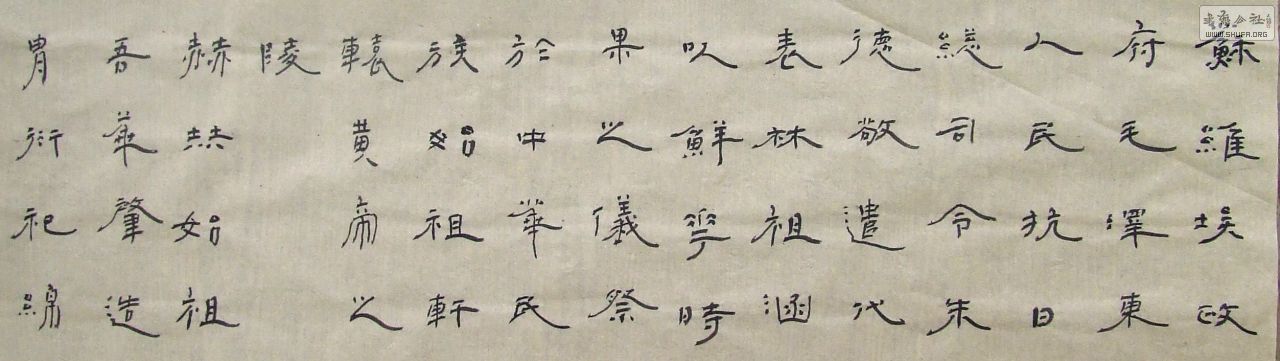 蘇維埃政
府毛澤東
人民抗日
總司令朱
德敬遣代
表林祖涵
以鮮花時
果之儀祭
於中華民
族始祖軒
轅黃帝之
陵
赫赫始祖
吾華肇造
胄衍祀綿
公社
WWW.SHUFA.ORG